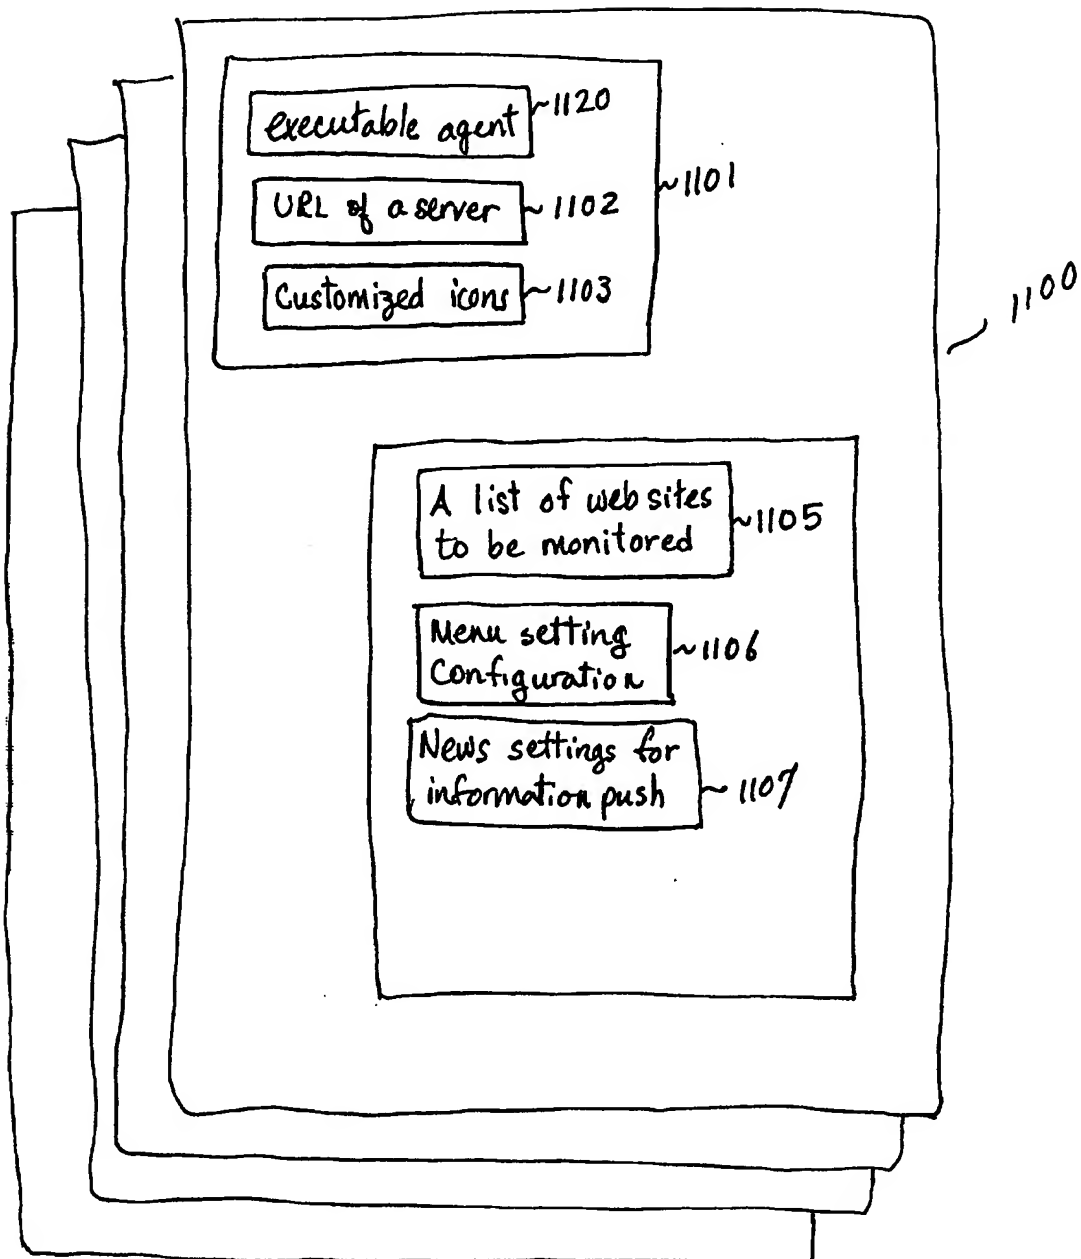 executable agent ~1120
URL of a server ~1102
Customized icons ~1103
~1101
1100
A list of web sites
to be monitored ~1105
Menu setting
Configuration ~1106
News settings for
information push ~1107